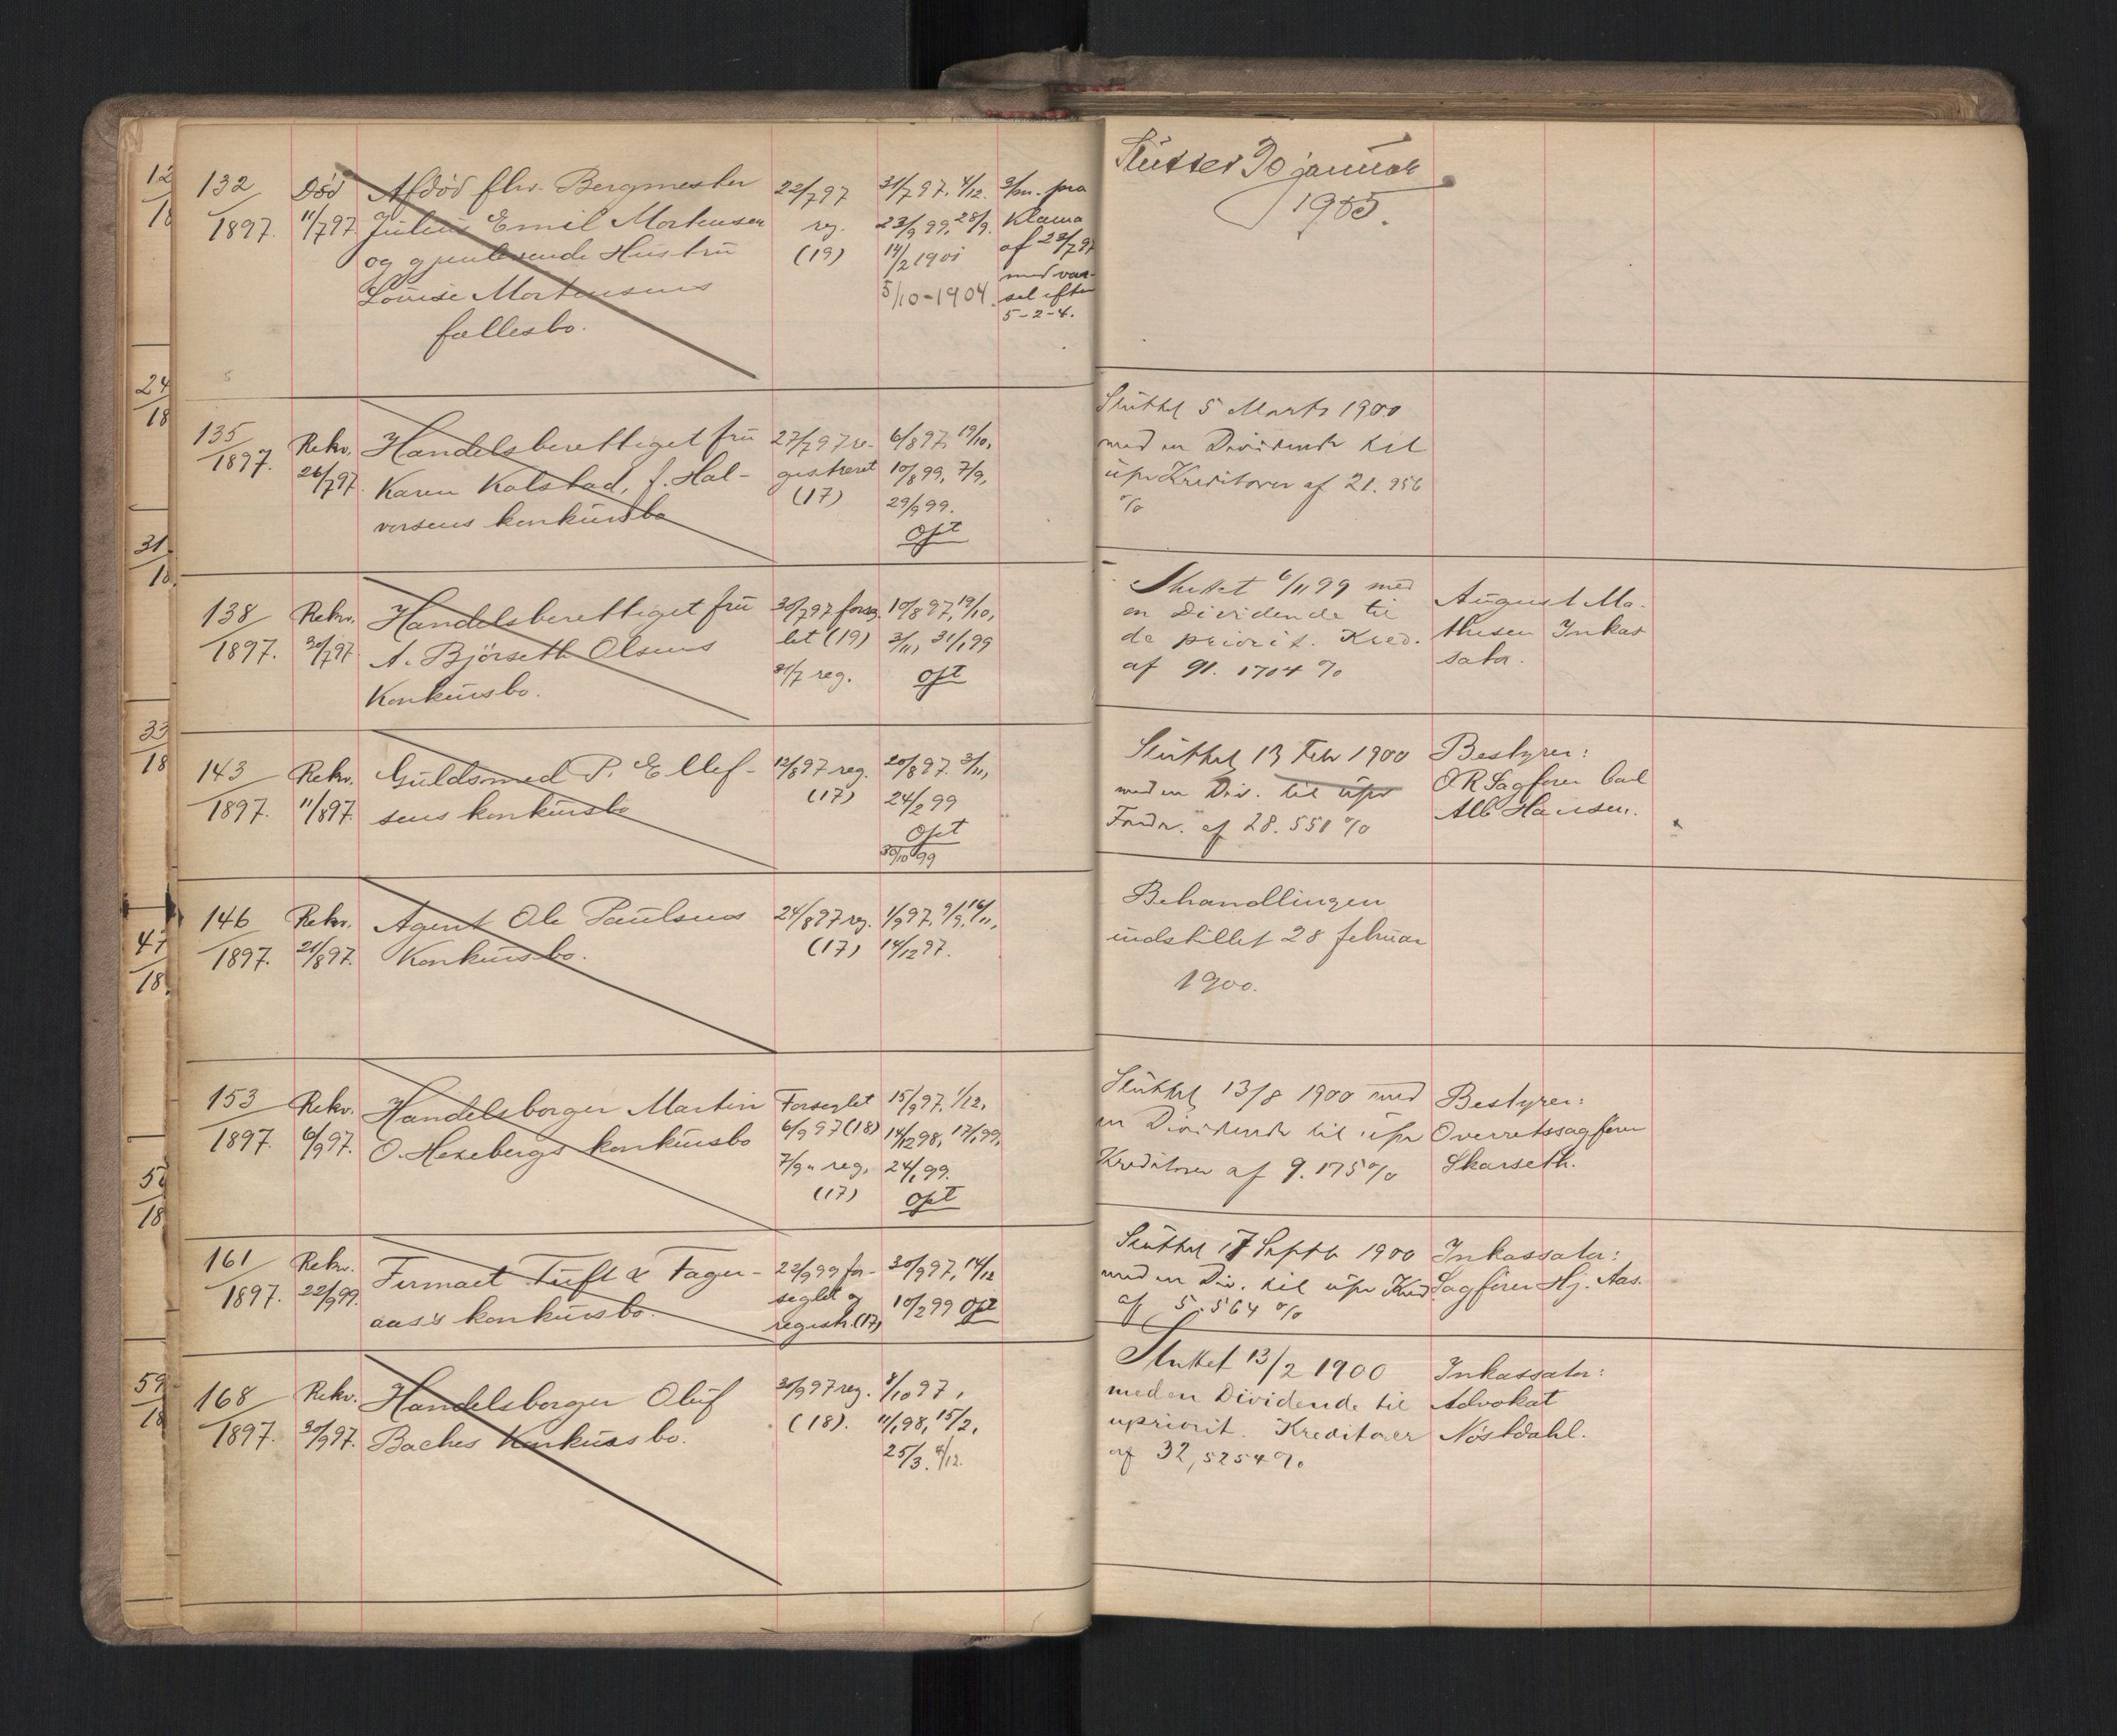 132
1897.
Död
11/7 97.
Afdöd fhv. Bergmester
Julius Emil Mortensen
og gjenlevende Hustru
Louise Mortensens
fællesbo.
22/7 97
reg.
(19)
31/7 97. 4/12.
23/9 99, 28/9.
14/2 1901
5/10-1904.
3/m. pro
klama
af 23/7 97
med var-
sel efter
5-2-4.
Sluttet 30 januar
1905.
135
1897.
Rekv.
26/7 97.
Handelsberettiget fru
Karen Kolstad, f. Hal-
vorsens konkursbo
27/7 97 re-
gistreret
(17)
6/8 97, 19/10,
10/8 99, 7/9,
29/9 99.
Opt
Sluttet 5 Marts 1900
med en Dividende til
upr Kreditorer af 21.956
%
138
1897.
Rekv.
30/7 97.
Handelsberettiget fru
A. Björseth Olsens
Konkursbo.
30/7 97 forseg-
let (19)
31/7 reg.
10/8 97, 19/10,
3/11, 31/1 99
Opt
Sluttet 6/11 99 med
en Dividende til
de priorit. Kred.
af 91.1704 %
August Ma-
thesen Inkas
sator.
143
1897.
Rekv.
11/8 97.
Guldsmed P. Ellef-
sens konkursbo
12/8 97 reg.
(17)
20/8 97. 3/11,
24/2 99
Opt
30/10 99
Sluttet 13 Feb 1900
med en Div. til upr
Fordr. af 28.551 %
Bestyrer:
O R Sagförer Carl
Alb Hansen.
146
1897.
Rekv.
21/8 97.
Agent Ole Paulsens
Konkursbo.
24/8 97 reg.
(17)
1/9 97, 9/9, 16/11,
14/12 97.
Behandlingen
indstillet 28 februar
1900.
153
1897.
Rekv.
6/9 97.
Handelsborger Martin
O. Hexebergs konkursbo
Forseglet
6/9 97 (18)
7/9 " reg,
(17)
15/9 97, 1/12,
14/12 98, 17/1 99,
24/1 99.
Opt
Sluttet 13/8 1900 med
en Dividende til upr
Kreditorer af 9.175 %
Bestyrer:
Overretssagförer
Skarseth.
161
1897.
Rekv.
22/9 99.
Firmaet Tuft & Fager-
aas's konkursbo.
22/9 99 for-
seglet og
registr. (17)
30/9 97, 14/12
10/2 99 Opt
Sluttet 17 Septb 1900
med en Div. til upr Kred
af 5.564 %
Inkassator:
Sagförer Hj. Aas.
168
1897.
Rekv.
30/9 97.
Handelsborger Oluf
Baches Konkursbo.
30/9 97 reg.
(18).
8/10 97,
11/1 98, 15/2,
25/3. 4/12.
Sluttet 13/2 1900
med en Dividende til
upriorit. Kreditorer
af 32,5254 %
Inkassator:
Advokat
Nöstdahl.